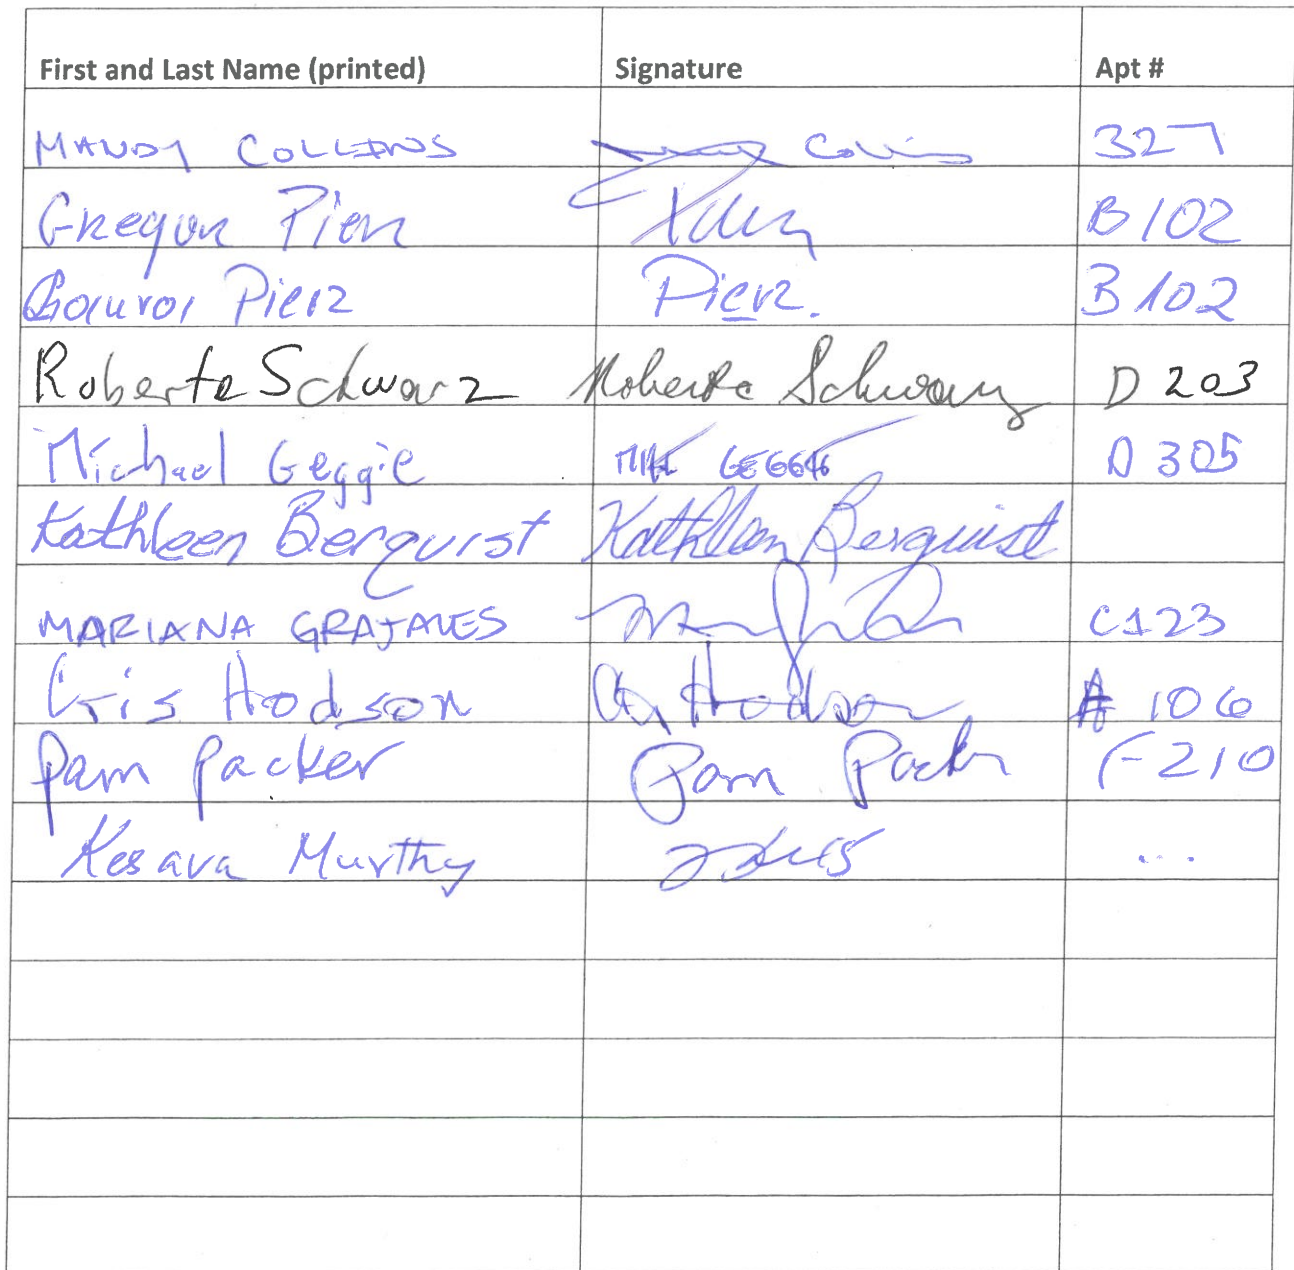 First and Last Name (printed) Signature Apt #
MANDY COLLINS Collins 327
Gregor Pierz B102
Pierz Pierz. B 102
Roberta Schwarz Roberta Schwarz D 203
Michael Geggie MIKE GEGGIE D 305
Kathleen Berquist Kathleen Berquist
MARIANA GRAJALES C123
Cris Hodson Hodson A 106
Pam Packer Pam Packer F210
Kesava Murthy ...